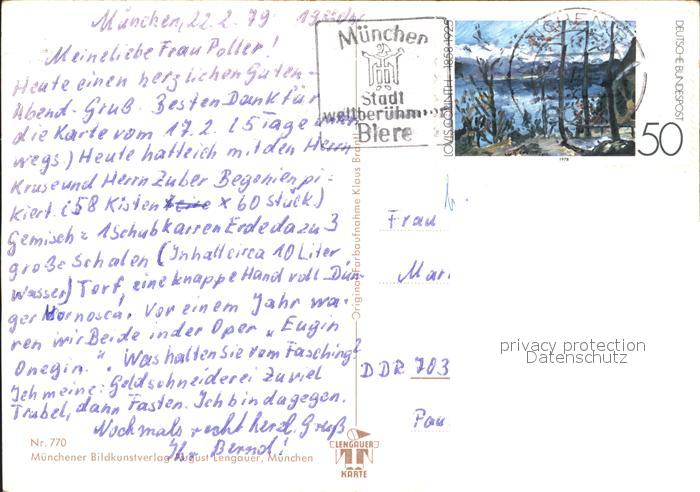 München, 22.2.79 19
Meine liebe Frau Poller!
Heute einen herzlichen Guten-
Abend-Gruß. Besten Dank für
die Karte vom 17.2. (5 Tage
wegs) Heute hatte ich mit den Herrn
Kruse und Herrn Zuber Begonien pi-
kiert. (58 Kisten x 60 Stück)
Gemisch = 1 Schubkarren Erde dazu 3
große Schalen (Inhalt circa 10 Liter
Wasser) Torf, eine knappe Hand voll Dün-
ger Mornosca! Vor einem Jahr wa-
ren wir Beide in der Oper „Eugin
Onegin." Was halten Sie vom Fasching?
Ich meine: Geldschneiderei zuviel
Trubel, dann Fasten. Ich bin dagegen.
Nochmals recht herzl. Gruß
Ihr Bernd!
Nr. 770
Münchener Bildkunstverlag August Lengauer, München
München
Stadt
weltberühm
Biere
LOVIS CORINTH 1858-1925
DEUTSCHE BUNDESPOST
50
1978
Original-Farbaufnahme Klaus Bran
Frau
Mari
DDR 703
Pau
LENGAUER
KARTE
privacy protection
Datenschutz